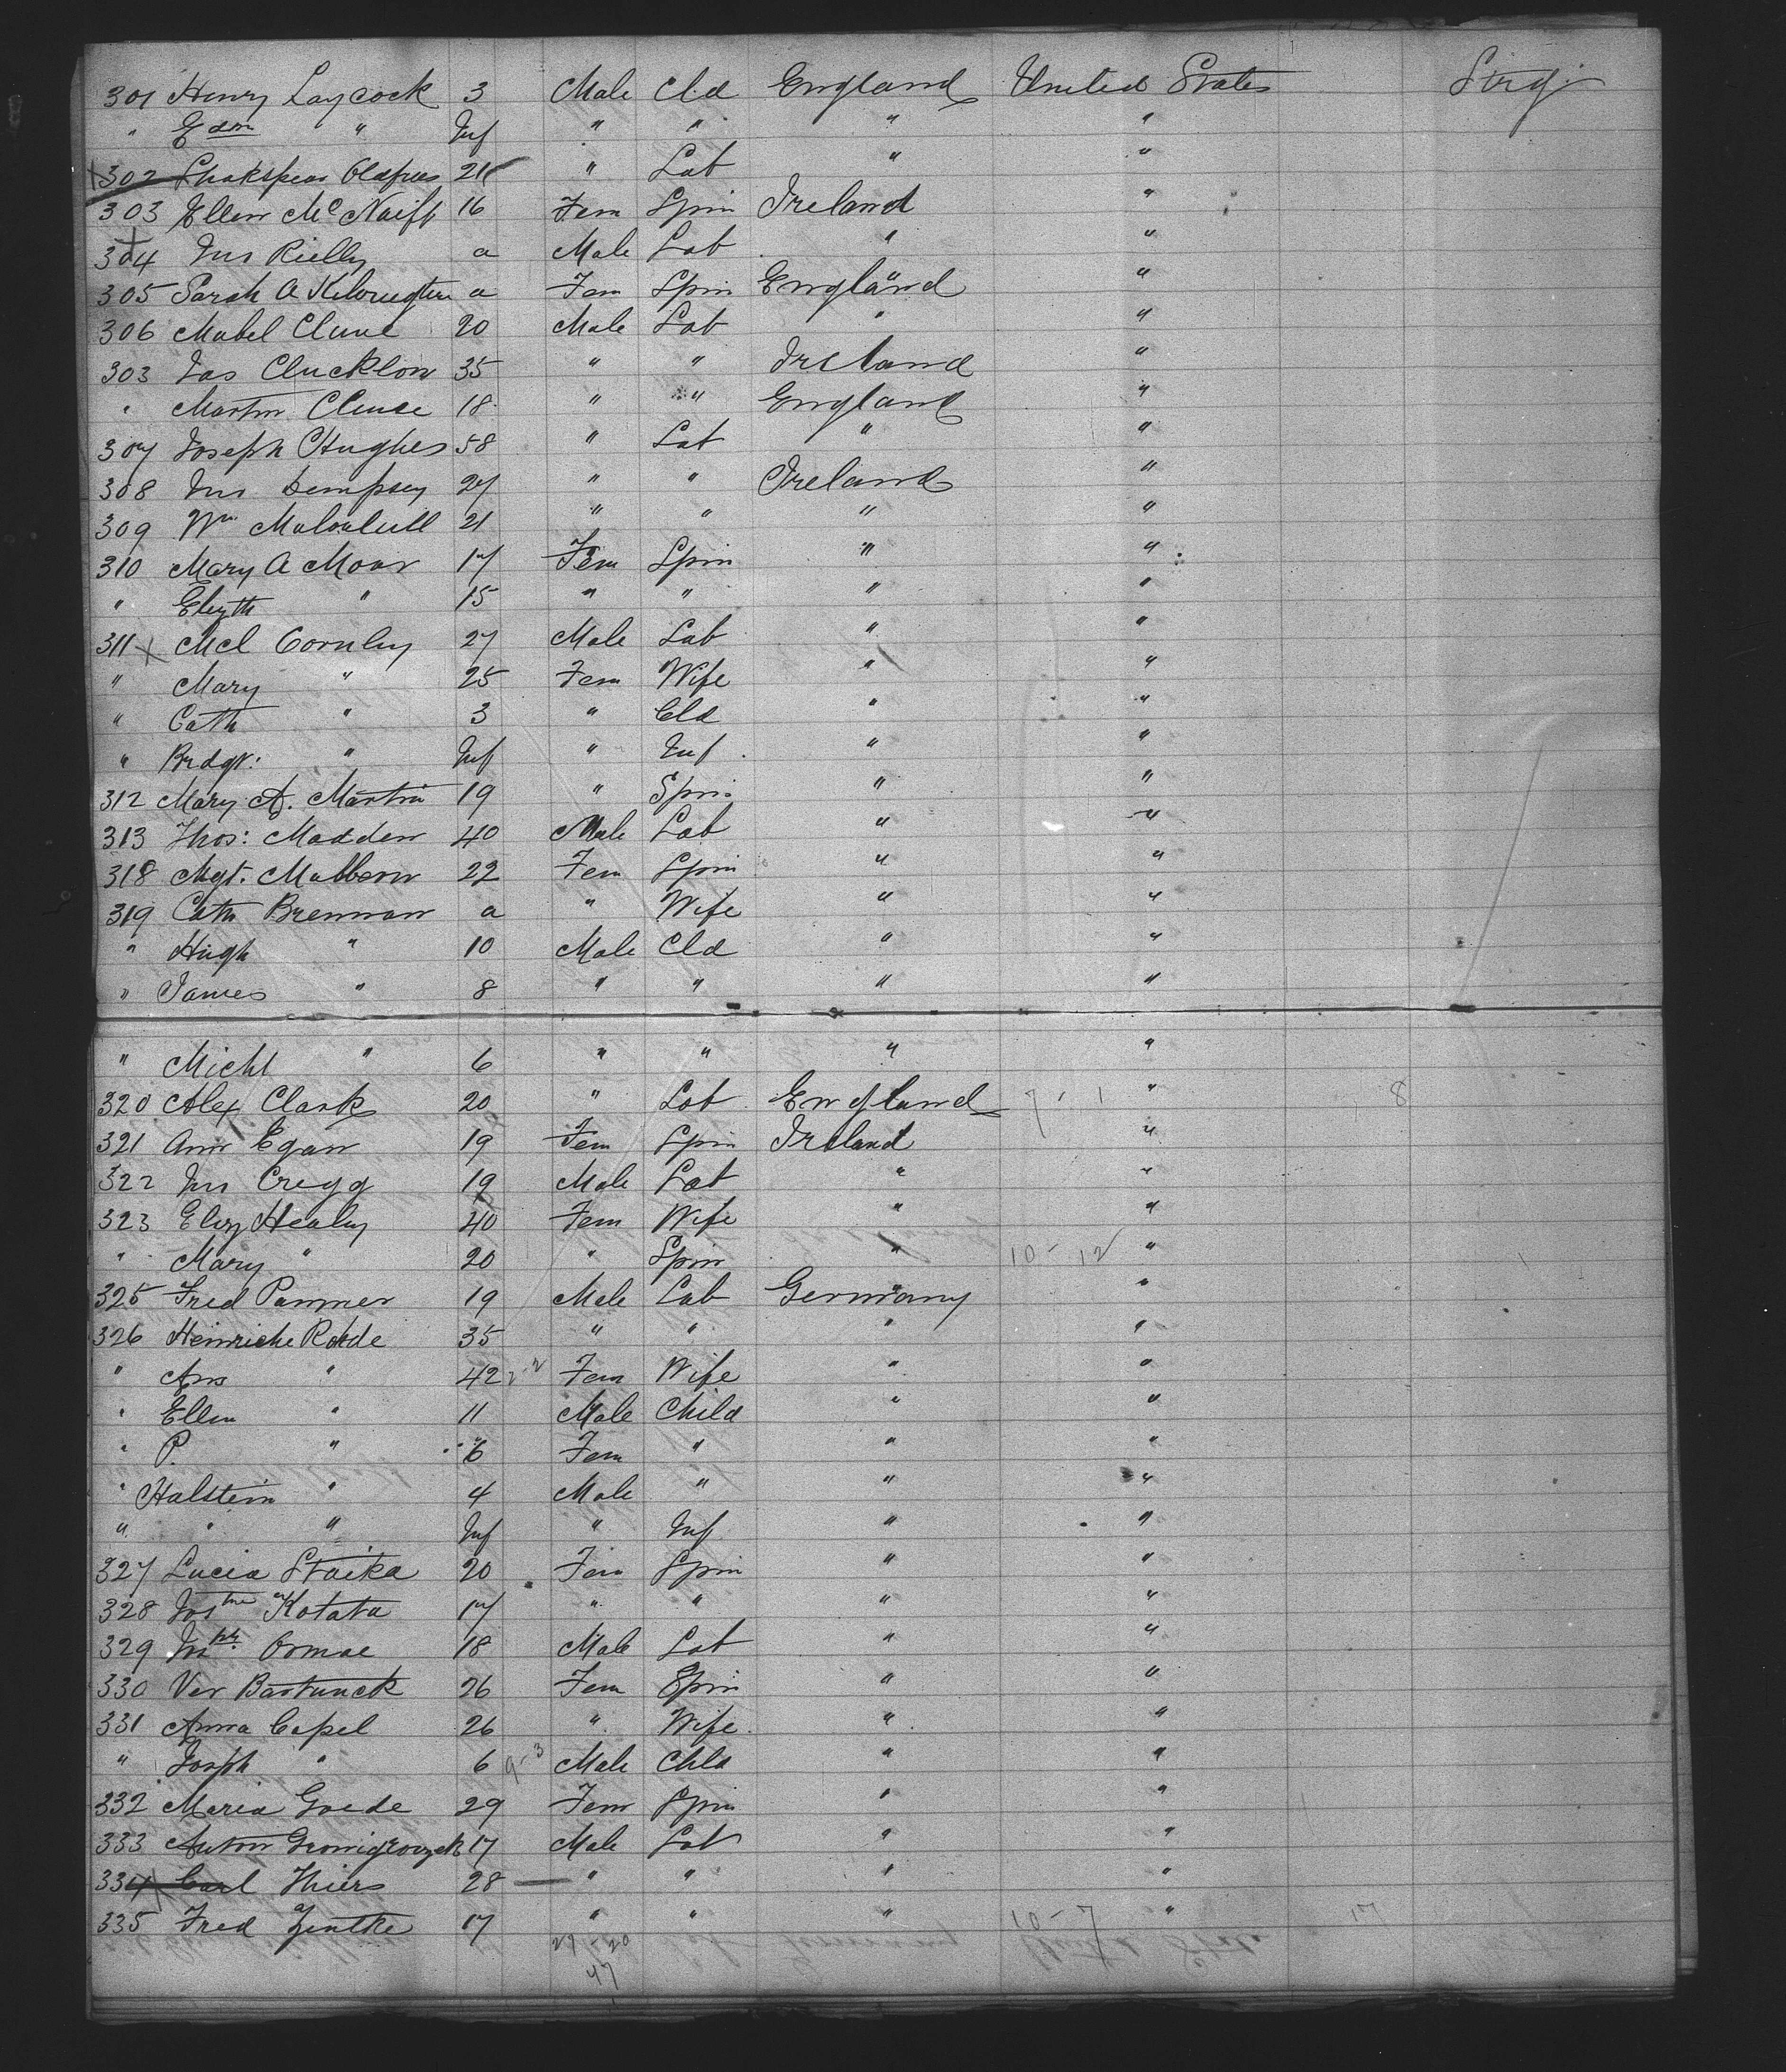 301 Henry Laycock 3 Male Cld England United States Strg.
" Edm " Inf " " " "
302 Shakspear 21 " Lab " "
303 Ellen McNaiff 16 Fem Spin Ireland "
304 Jno Rielly a Male Lab " "
305 Sarah A a Fem Spin England "
306 Mabel Clune 20 Male Lab " "
303 Jas Clucklow 35 " " Ireland "
" Martin Cluse 18 " " England "
307 Joseph Hughes 58 " Lab " "
308 Jno Dempsey 27 " " Ireland "
309 Wm 21 " " " "
310 Mary A Moor 17 Fem Spin " "
" Elizth " 15 " " " "
311 Mcl Cornley 27 Male Lab " "
" Mary " 25 Fem Wife " "
" Cath " 3 " Cld " "
" Brdgt: " Inf " Inf " "
312 Mary A. Martin 19 " Spin " "
313 Thos: Madden 40 Male Lab " "
318 Mgt. 22 Fem Spin " "
319 Cath Brennan a " Wife " "
" Hugh " 10 Male Cld " "
" James " 8 " " " "
" Michl " 6 " " " "
320 Alex Clark 20 " Lab England 7 1 " 8
321 Ann Egan 19 Fem Spin Ireland "
322 Jno Cregg 19 Male Lab " "
323 Eliz Healey 40 Fem Wife " "
" Mary " 20 " Spin " 10-12 "
325 Fred Pammer 19 Male Lab Germany "
326 Heinriche Rohde 35 " " " "
" Ann " 42 2-2 Fem Wife " "
" Ellen " 11 Male Child " "
" P. " 6 Fem " " "
" Halstein " 4 Male " " "
" " " Inf " Inf " "
327 Lucia Staika 20 Fem Spin " "
328 Jostne Kotata 17 " " " "
329 Ormae 18 Male Lab " "
330 Ver Bartunek 26 Fem Spin " "
331 Anna Capel 26 " Wife " "
" Joseph " 6 9-3 Male Chld " "
332 Maria Goede 29 Fem Spin " "
333 Anton 17 Male Lab " "
334 Carl Thiers 28 " " " "
335 Fred Zentke 17 " " " 10-7 " 17
27-20
47